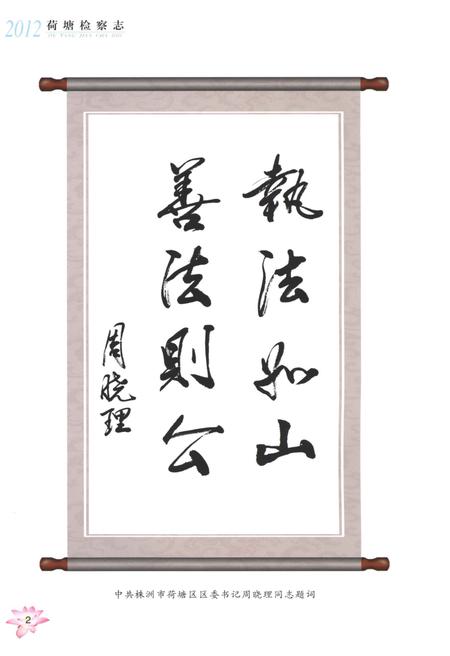 2012 荷塘检察志
執法如山
善法則公
周晓理
中共株洲市荷塘区区委书记周晓理同志题词
2